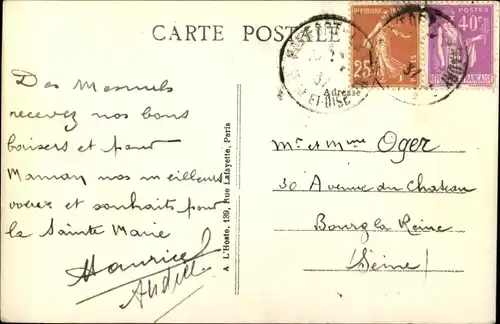 CARTE POSTALE
POSTES
40c
25c
ET-OISE
Adresse
Des Mesnuls
recevez nos bons
baisers et pour
Maman nos meilleurs
voeux et souhaits pour
la Sainte Marie
Maurice
Andrée
A. L'Hoste, 139, Rue Lafayette, Paris
Mr et Mme Oger
30 Avenue du Chateau
Bourg la Reine
(Seine)